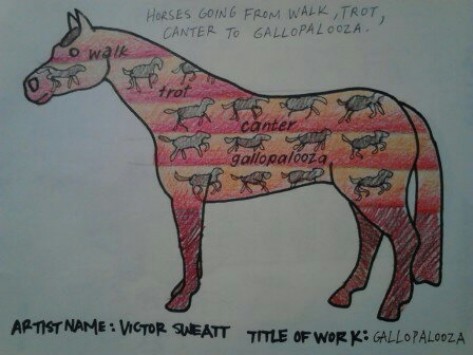 HORSES GOING FROM WALK, TROT,
CANTER TO GALLOPALOOZA.
walk
trot
canter
gallopalooza
ARTIST NAME: VICTOR SWEATT TITLE OF WORK: GALLOPALOOZA